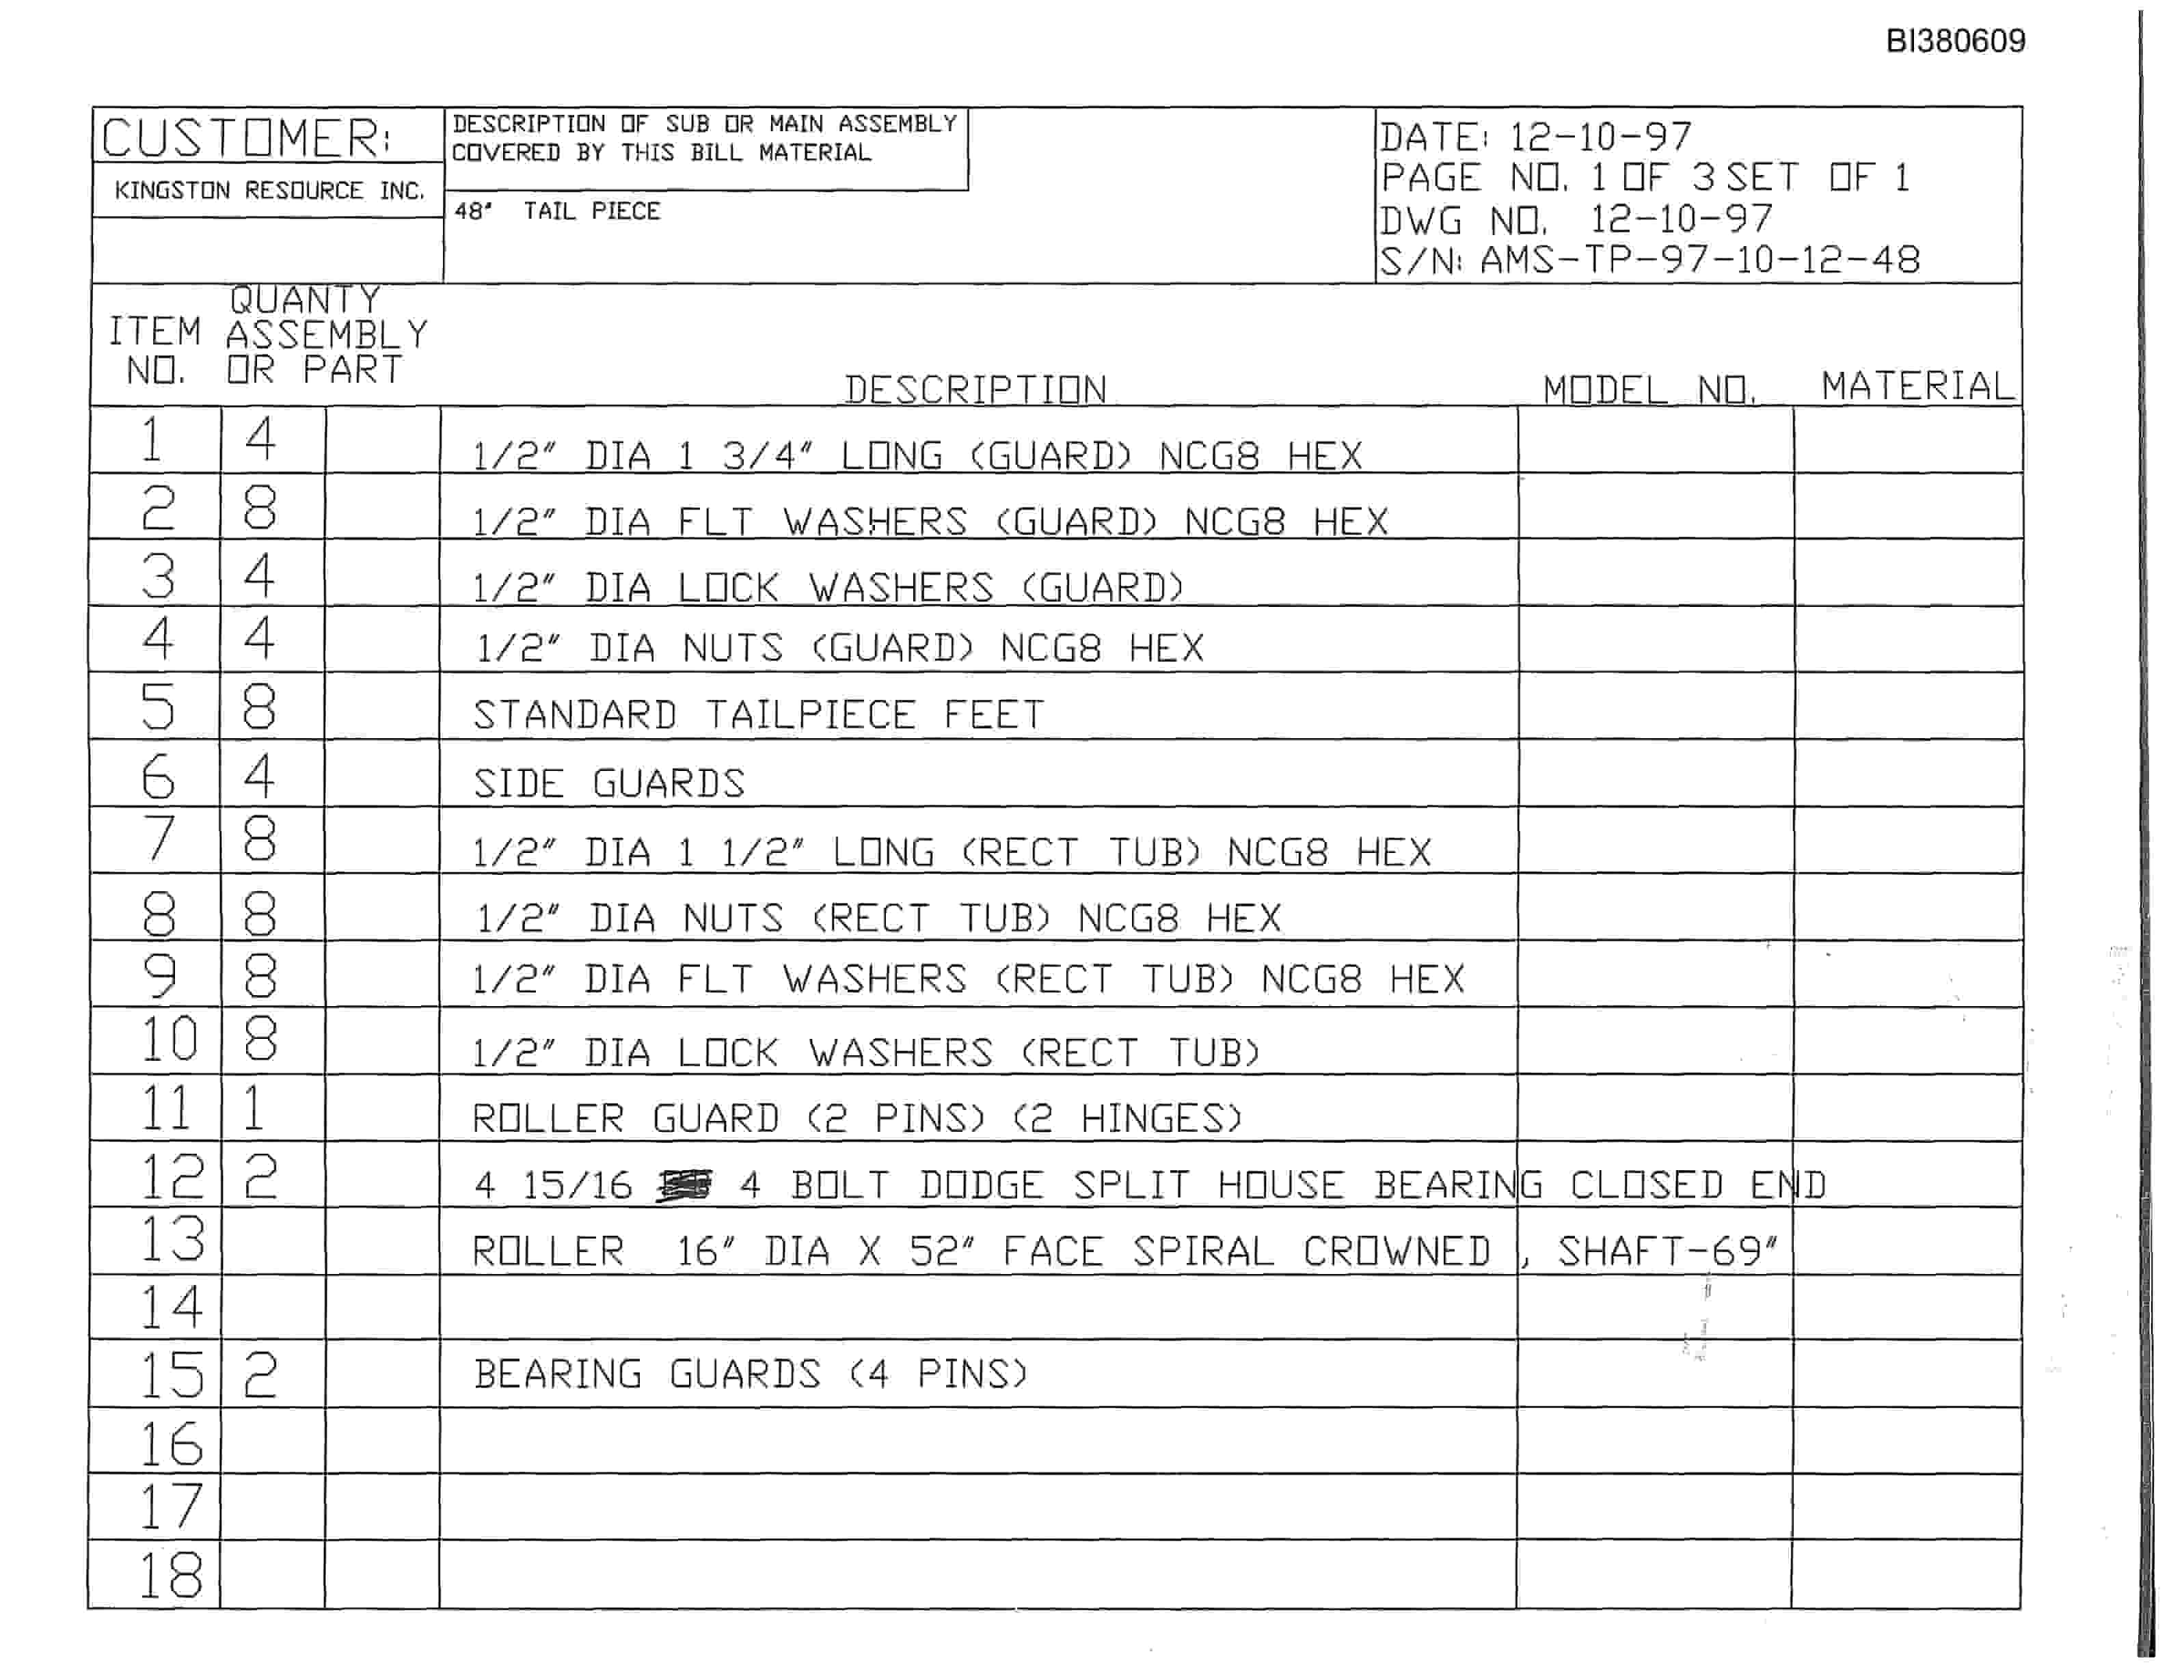 BI380609
CUSTOMER:
KINGSTON RESOURCE INC.
DESCRIPTION OF SUB OR MAIN ASSEMBLY
COVERED BY THIS BILL MATERIAL
48" TAIL PIECE
DATE: 12-10-97
PAGE NO. 1 OF 3 SET OF 1
DWG NO. 12-10-97
S/N: AMS-TP-97-10-12-48
ITEM NO.
QUANTY ASSEMBLY OR PART
DESCRIPTION
MODEL NO.
MATERIAL
1 4 1/2" DIA 1 3/4" LONG (GUARD) NCG8 HEX
2 8 1/2" DIA FLT WASHERS (GUARD) NCG8 HEX
3 4 1/2" DIA LOCK WASHERS (GUARD)
4 4 1/2" DIA NUTS (GUARD) NCG8 HEX
5 8 STANDARD TAILPIECE FEET
6 4 SIDE GUARDS
7 8 1/2" DIA 1 1/2" LONG (RECT TUB) NCG8 HEX
8 8 1/2" DIA NUTS (RECT TUB) NCG8 HEX
9 8 1/2" DIA FLT WASHERS (RECT TUB) NCG8 HEX
10 8 1/2" DIA LOCK WASHERS (RECT TUB)
11 1 ROLLER GUARD (2 PINS) (2 HINGES)
12 2 4 15/16 4 BOLT DODGE SPLIT HOUSE BEARING CLOSED END
13 ROLLER 16" DIA X 52" FACE SPIRAL CROWNED , SHAFT-69"
14
15 2 BEARING GUARDS (4 PINS)
16
17
18